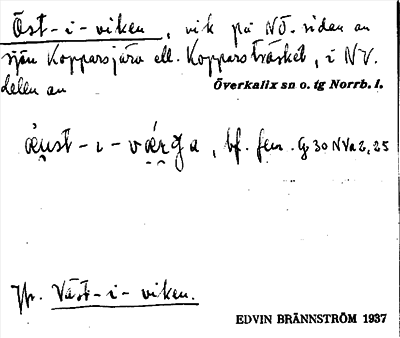 Öst-i-viken, vik på NÖ. sidan an
sjön Kopparsjärv ell. Koppars­träsket, i NV.
delen an Överkalix sn o. tg Norrb. l.
æust-i-værga, bf. fem. G 30 NVa 2, 25
Jfr. Väst-i-viken.
EDVIN BRÄNNSTRÖM 1937